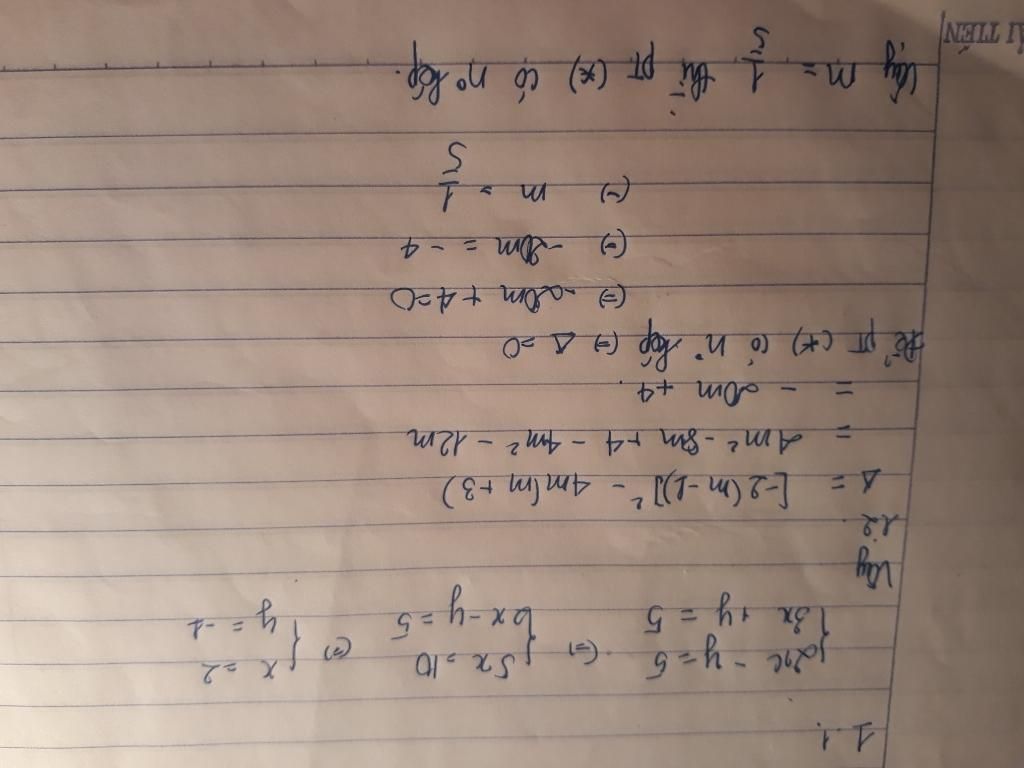 1.1.
{2x - y = 5 (=) {5x = 10 (=) {x = 2
{3x + y = 5 {2x - y = 5 {y = -1
Vậy
1.2.
Δ = [-2(m-1)]² - 4m(m+3)
= 4m² - 8m + 4 - 4m² - 12m
= - 20m + 4.
Để pt (*) có n° kép (=) Δ = 0
(=) -20m + 4 = 0
(=) -20m = -4
(=) m = 1/5
Vậy m = 1/5 thì pt (*) có n° kép.
ẢI TIẾN